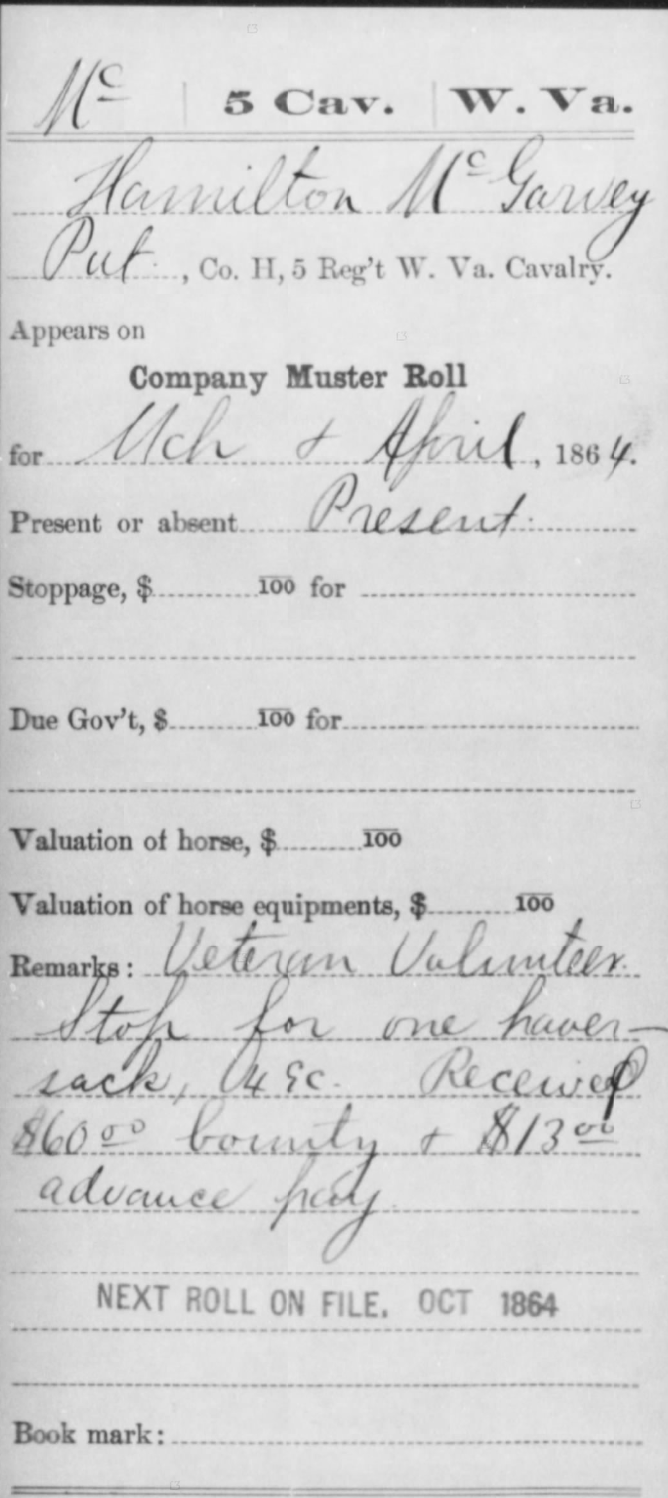 Mc | 5 Cav. | W. Va.
Hamilton McGarvey
Pvt., Co. H, 5 Reg't W. Va. Cavalry.
Appears on
Company Muster Roll
for Mch & April, 1864.
Present or absent Present.
Stoppage, $ 100 for
Due Gov't, $ 100 for
Valuation of horse, $ 100
Valuation of horse equipments, $ 100
Remarks: Veteran Volunteer.
Stop for one haver-
sack, 48c. Received
$60.00 bounty & $13.00
advance pay.
NEXT ROLL ON FILE. OCT 1864
Book mark: